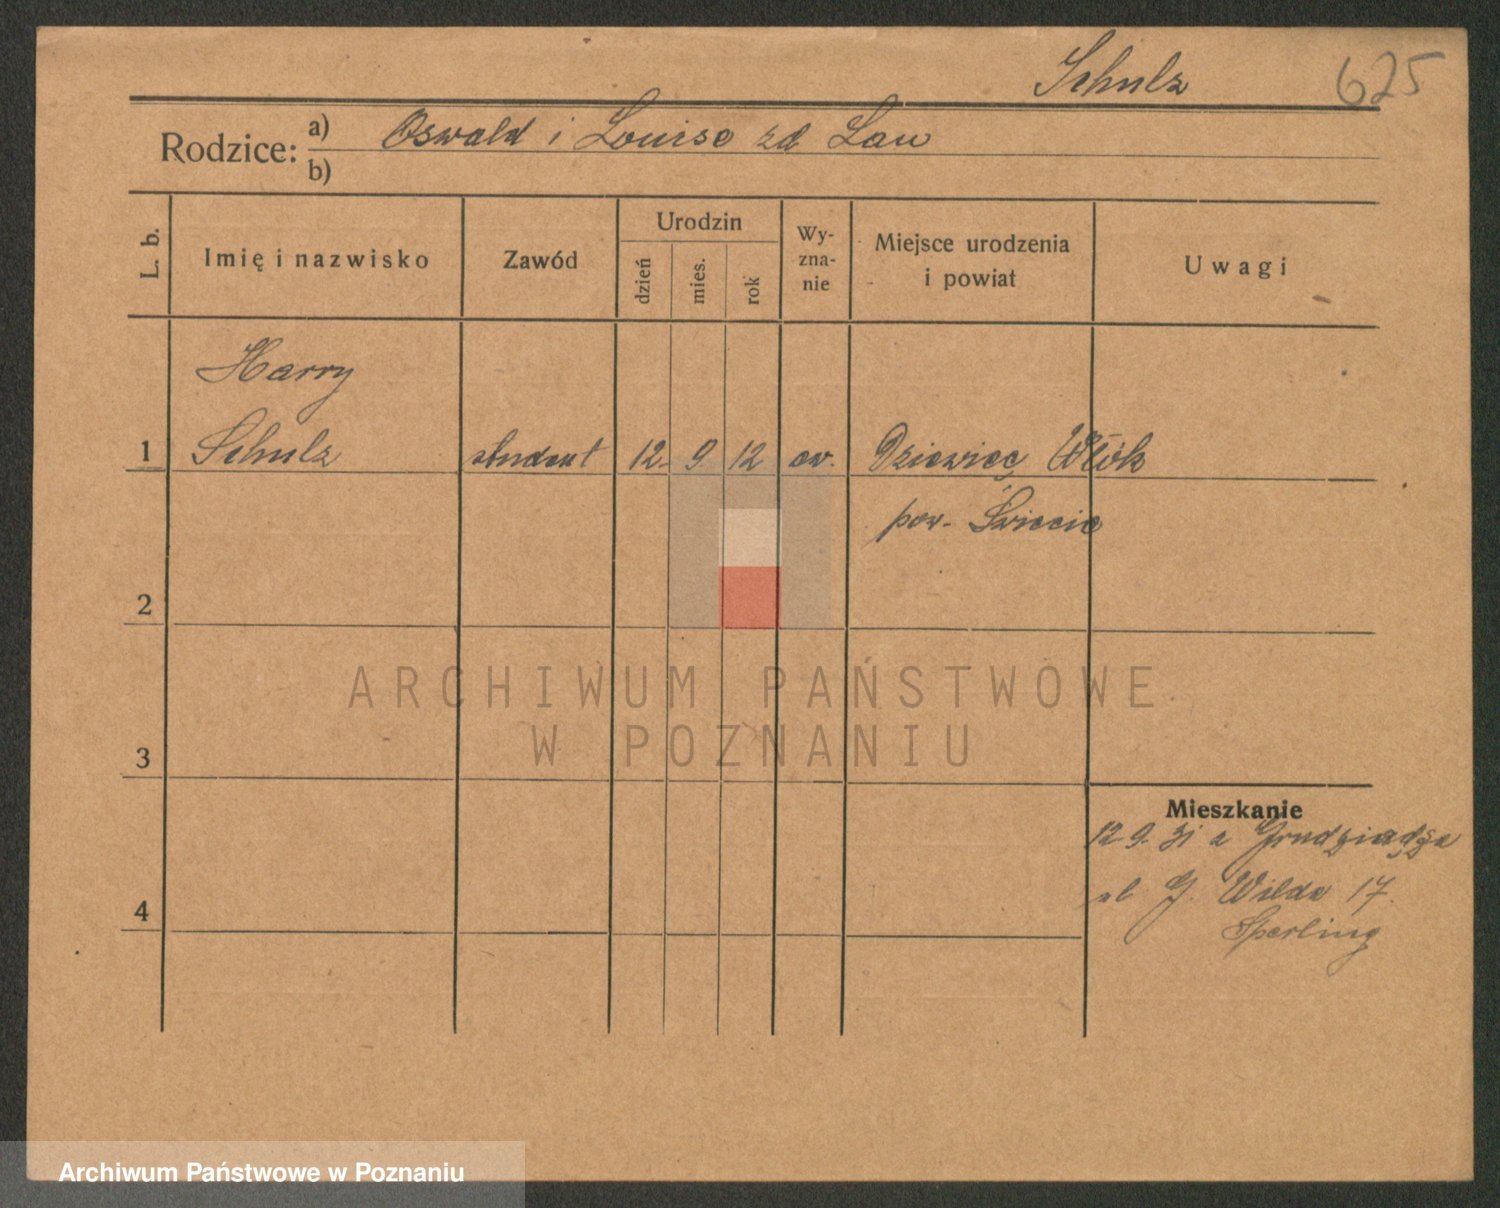 Schulz 625
Rodzice: a) Oswald i Louise zd Lau
b)
L. b. Imię i nazwisko Zawód Urodzin dzień mies. rok Wyznanie Miejsce urodzenia i powiat Uwagi
Harry
1 Schulz student 12 9 12 ew. Dziewięć Włók
pow. Świecie
2
ARCHIWUM PAŃSTWOWE
W POZNANIU
3
Mieszkanie
12 9. 31 z Grudziądza
4 ul G. Wilda 17.
Sperling
Archiwum Państwowe w Poznaniu